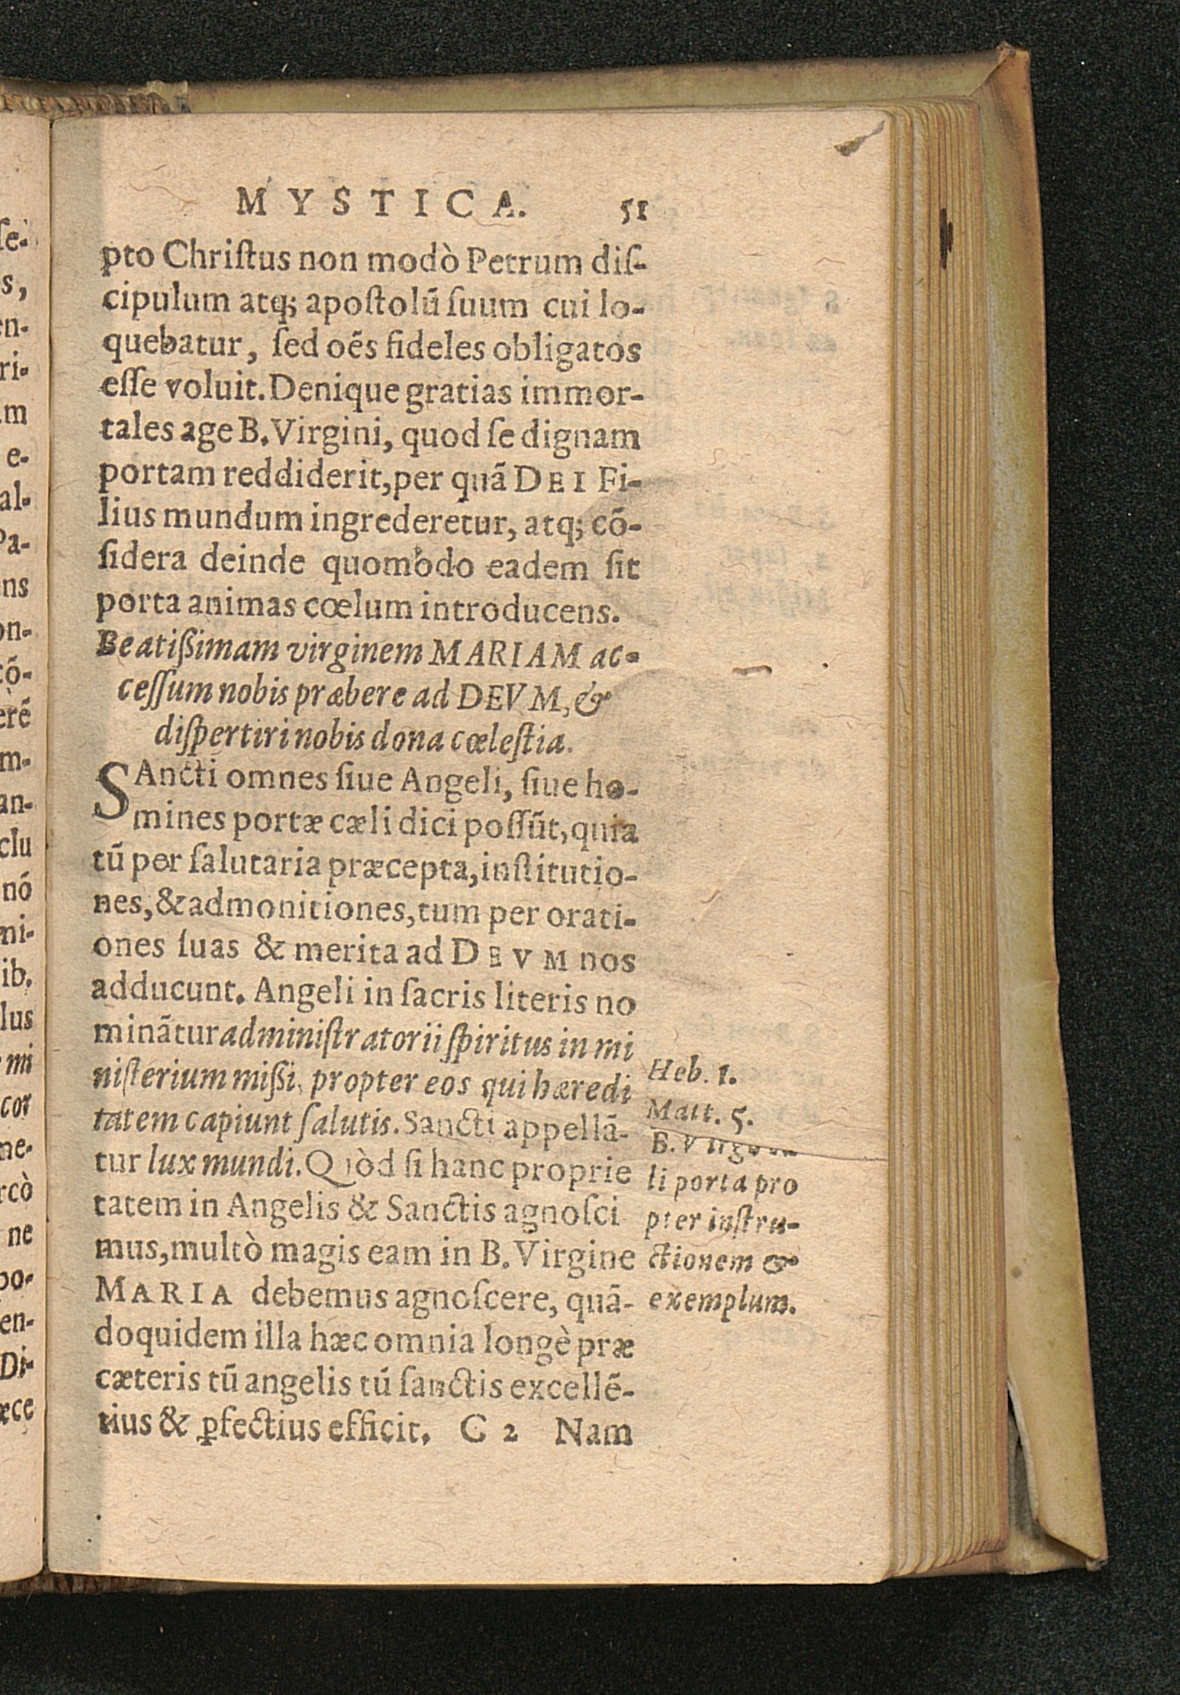 MYSTICA. 51
pto Chriſtus non modò Petrum diſ-
cipulum atq; apoſtolū ſuum cui lo-
quebatur, ſed oēs fideles obligatos
eſſe voluit. Denique gratias immor-
tales age B. Virgini, quod ſe dignam
portam reddiderit, per quā DEI Fi-
lius mundum ingrederetur, atq; cō-
ſidera deinde quomodo eadem ſit
porta animas cœlum introducens.
Beatißimam virginem MARIAM ac-
ceſſum nobis præbere ad DEVM, &
diſpertiri nobis dona cœleſtia.
SAncti omnes ſiue Angeli, ſiue ho-
mines portæ cæli dici poſſūt, quia
tū per ſalutaria præcepta, inſtitutio-
nes, & admonitiones, tum per orati-
ones ſuas & merita ad DEVM nos
adducunt. Angeli in ſacris literis no
minātur adminiſtratorii ſpiritus in mi
niſterium mißi, propter eos qui hæredi
tatem capiunt ſalutis. Sancti appellā-
tur lux mundi. Quòd ſi hanc proprie
tatem in Angelis & Sanctis agnoſci
mus, multò magis eam in B. Virgine
MARIA debemus agnoſcere, quā-
doquidem illa hæc omnia longè præ
cæteris tū angelis tū ſanctis excellē-
tius & ꝑfectius efficit. C 2 Nam
Heb. 1.
Matt. 5.
B.
li porta pro
pter inſtru-
ctionem &
exemplum.
ſe-
s,
en-
ri-
am
e-
al-
Pa-
ens
on-
cō-
erē
m-
an-
clu
nō
mi-
ib.
lus
mi
cor
ne-
rcò
ne
po-
en-
Di-
æce